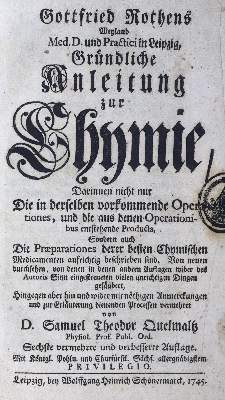 Gottfried Rothens
Weyland
Med. D. und Practici in Leipzig,
Gründliche
Anleitung
zur
Chymie,
Darinnen nicht nur
Die in derselben vorkommende Opera-
tiones, und die aus denen Operationi-
bus entstehende Producta,
Sondern auch
Die Præparationes derer besten Chymischen
Medicamenten aufrichtig beschrieben sind. Von neuen
durchsehen, von denen in denen andern Auflagen wider des
Autoris Sinn eingestreueten vielen unrichtigen Dingen
gesäubert,
Hingegen aber hin und wieder mit nöthigen Anmerckungen
und zur Erläuterung dienenden Processen vermehret
von
D. Samuel Theodor Quelmaltz
Physiol. Prof. Publ. Ord.
Sechste vermehrte und verbesserte Auflage.
Mit Königl. Pohln. und Churfürstl. Sächs. allergnädigstem
PRIVILEGIO.
Leipzig, bey Wolffgang Heinrich Schönermarck, 1745.